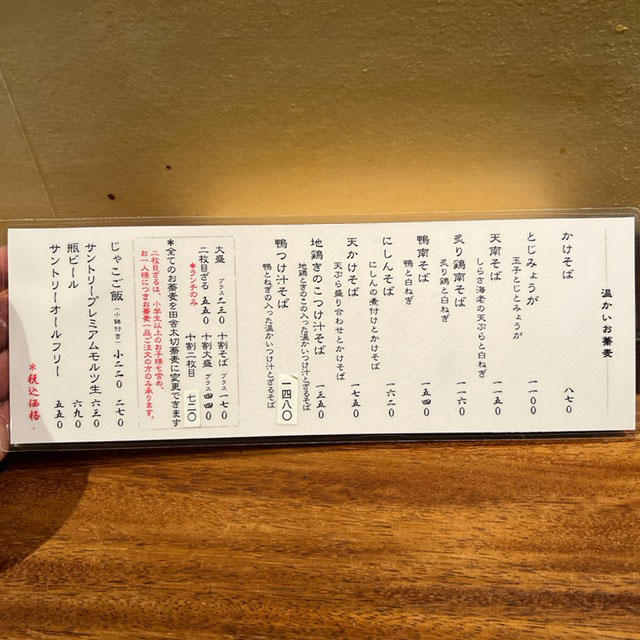 温かいお蕎麦
かけそば 八七〇
とじみょうが 一一〇〇
玉子とじとみょうが
天南そば 一一五〇
しらさ海老の天ぷらと白ねぎ
炙り鶏南そば 一一六〇
炙り鶏と白ねぎ
鴨南そば 一五四〇
鴨と白ねぎ
にしんそば 一六二〇
にしんの煮付けとかけそば
天かけそば 一七五〇
天ぷら盛り合わせとかけそば
地鶏きのこつけ汁そば 一三五〇
地鶏ときのこの入った温かいつけ汁とざるそば
鴨つけ汁そば 一四八〇
鴨とねぎの入った温かいつけ汁とざるそば
大盛 プラス 二三〇 十割そば プラス 一七〇
二枚目ざる 五五〇 十割大盛 プラス 四四〇
*ランチのみ 十割二枚目 七二〇
*全てのお蕎麦を田舎太切蕎麦に変更できます
二枚目ざるは、小学生以上のお子様も含め、
お一人様につきお蕎麦一品ご注文の方のみ承ります。
じゃこご飯 (小鉢付き) 小二二〇 二七〇
サントリープレミアムモルツ生 六三〇
瓶ビール 六九〇
サントリーオールフリー 五五〇
*税込価格。